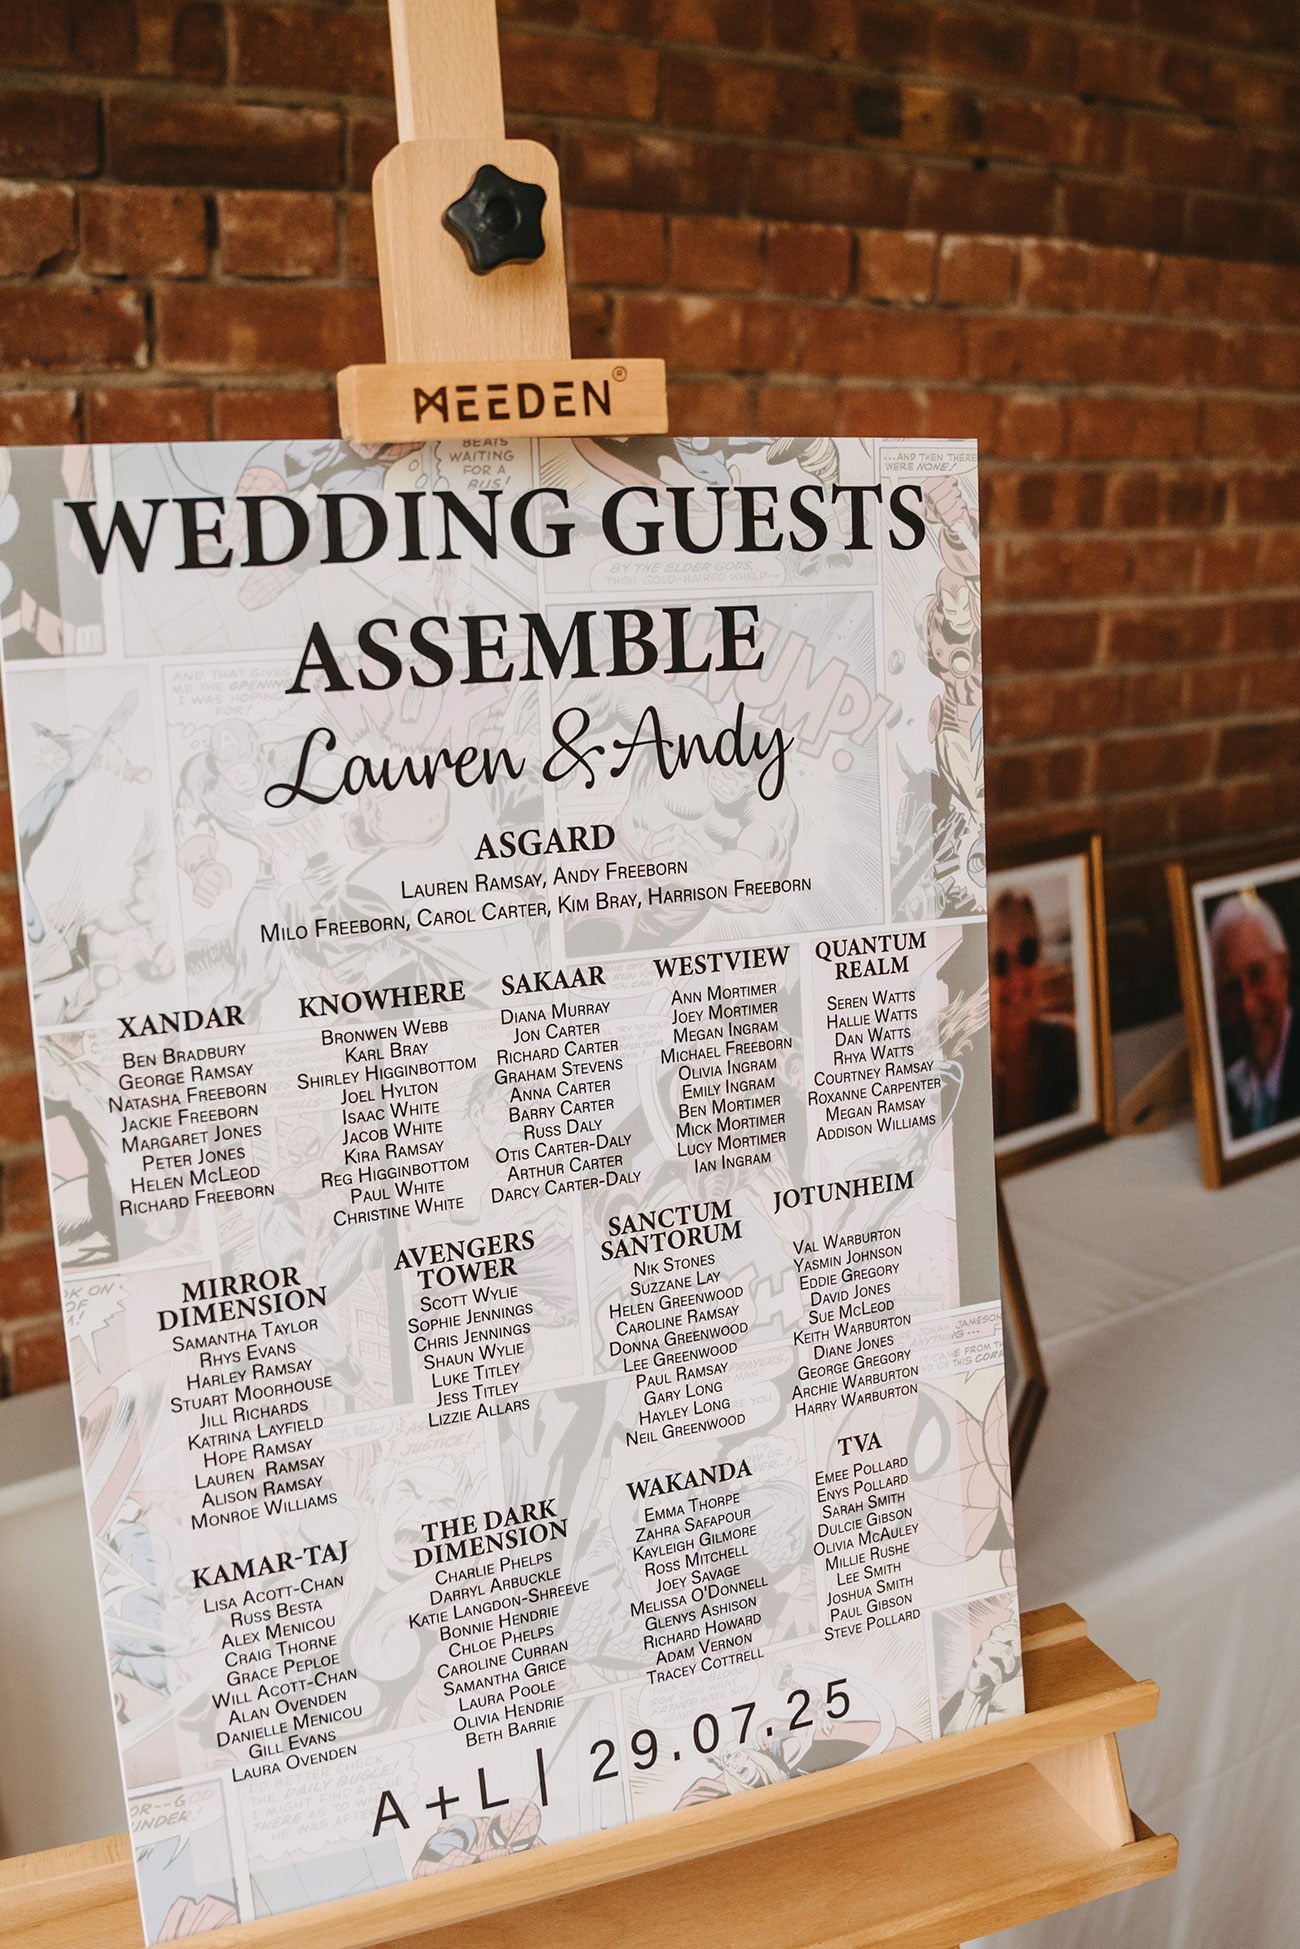 MEEDEN®
BEATS
WAITING
FOR A
BUS!
...AND THEN THERE
WERE NONE!
WEDDING GUESTS
ASSEMBLE
BY THE ELDER GODS,
THOU GOLD-HAIRED WHELP--
AND THAT GIVES
ME THE OPENING
I WAS HOPING
FOR!
Lauren & Andy
ASGARD
LAUREN RAMSAY, ANDY FREEBORN
MILO FREEBORN, CAROL CARTER, KIM BRAY, HARRISON FREEBORN
XANDAR
BEN BRADBURY
GEORGE RAMSAY
NATASHA FREEBORN
JACKIE FREEBORN
MARGARET JONES
PETER JONES
HELEN MCLEOD
RICHARD FREEBORN
KNOWHERE
BRONWEN WEBB
KARL BRAY
SHIRLEY HIGGINBOTTOM
JOEL HYLTON
ISAAC WHITE
JACOB WHITE
KIRA RAMSAY
REG HIGGINBOTTOM
PAUL WHITE
CHRISTINE WHITE
SAKAAR
DIANA MURRAY
JON CARTER
RICHARD CARTER
GRAHAM STEVENS
ANNA CARTER
BARRY CARTER
RUSS DALY
OTIS CARTER-DALY
ARTHUR CARTER
DARCY CARTER-DALY
WESTVIEW
ANN MORTIMER
JOEY MORTIMER
MEGAN INGRAM
MICHAEL FREEBORN
OLIVIA INGRAM
EMILY INGRAM
BEN MORTIMER
MICK MORTIMER
LUCY MORTIMER
IAN INGRAM
QUANTUM
REALM
SEREN WATTS
HALLIE WATTS
DAN WATTS
RHYA WATTS
COURTNEY RAMSAY
ROXANNE CARPENTER
MEGAN RAMSAY
ADDISON WILLIAMS
MIRROR
DIMENSION
SAMANTHA TAYLOR
RHYS EVANS
HARLEY RAMSAY
STUART MOORHOUSE
JILL RICHARDS
KATRINA LAYFIELD
HOPE RAMSAY
LAUREN RAMSAY
ALISON RAMSAY
MONROE WILLIAMS
AVENGERS
TOWER
SCOTT WYLIE
SOPHIE JENNINGS
CHRIS JENNINGS
SHAUN WYLIE
LUKE TITLEY
JESS TITLEY
LIZZIE ALLARS
SANCTUM
SANTORUM
NIK STONES
SUZZANE LAY
HELEN GREENWOOD
CAROLINE RAMSAY
DONNA GREENWOOD
LEE GREENWOOD
PAUL RAMSAY
GARY LONG
HAYLEY LONG
NEIL GREENWOOD
JOTUNHEIM
VAL WARBURTON
YASMIN JOHNSON
EDDIE GREGORY
DAVID JONES
SUE MCLEOD
KEITH WARBURTON
DIANE JONES
GEORGE GREGORY
ARCHIE WARBURTON
HARRY WARBURTON
KAMAR-TAJ
LISA ACOTT-CHAN
RUSS BESTA
ALEX MENICOU
CRAIG THORNE
GRACE PEPLOE
WILL ACOTT-CHAN
ALAN OVENDEN
DANIELLE MENICOU
GILL EVANS
LAURA OVENDEN
THE DARK
DIMENSION
CHARLIE PHELPS
DARRYL ARBUCKLE
KATIE LANGDON-SHREEVE
BONNIE HENDRIE
CHLOE PHELPS
CAROLINE CURRAN
SAMANTHA GRICE
LAURA POOLE
OLIVIA HENDRIE
BETH BARRIE
WAKANDA
EMMA THORPE
ZAHRA SAFAPOUR
KAYLEIGH GILMORE
ROSS MITCHELL
JOEY SAVAGE
MELISSA O'DONNELL
GLENYS ASHISON
RICHARD HOWARD
ADAM VERNON
TRACEY COTTRELL
TVA
EMEE POLLARD
ENYS POLLARD
SARAH SMITH
DULCIE GIBSON
OLIVIA MCAULEY
MILLIE RUSHE
LEE SMITH
JOSHUA SMITH
PAUL GIBSON
STEVE POLLARD
A+L | 29.07.25